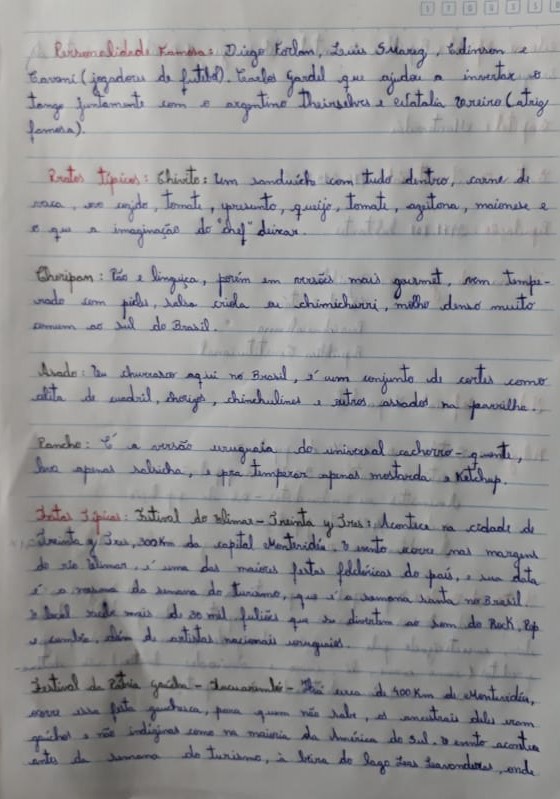 Personalidade Famosa: Diego Forlan, Luis Suarez, Edinson e
Cavani (jogadores de futebol). Carlos Gardel que ajudou a inventar o
tango juntamente com o argentino Theirselves e Natalia Oreiro (atriz
famosa).
Pratos típicos: Chivito: Um sanduíche com tudo dentro, carne de
vaca, ovo cozido, tomate, presunto, queijo, tomate, azeitona, maionese e
o que a imaginação do "chef" deixar.
Choripan: Pão e linguiça, porém em versões mais gourmet, vem tempe-
rado com picles, salsa criola ou chimichurri, molho denso muito
comum ao sul do Brasil.
Asado: Ou churrasco aqui no Brasil, é um conjunto de cortes como
colita de cuadril, chorizo, chinchulines e outros assados na parrilha.
Pancho: É a versão uruguaia do universal cachorro-quente,
leva apenas salsicha, e pra temperar apenas mostarda e Ketchup.
Festas Típicas: Festival do Olimar - Treinta y Tres: Acontece na cidade de
Treinta y Tres, 300 Km da capital Montevidéu, O evento ocorre nas margens
do rio Olimar, é uma das maiores festas folclóricas do país, e sua data
é a mesma da semana do turismo, que é a semana santa no Brasil.
O local recebe mais de 30 mil foliões que se divertem ao som do Rock, Pop
e cumbia, além de artistas nacionais uruguaios.
Festival da Pátria Gaúcha - Tacuarembó - cerca de 400 Km de Montevidéu,
ocorre essa festa gauchesca, para quem não sabe, os ancestrais deles eram
gaúchos e não indígenas como na maioria da América do Sul. O evento acontece
antes da semana do turismo, à beira do lago Las Lavanderas, onde